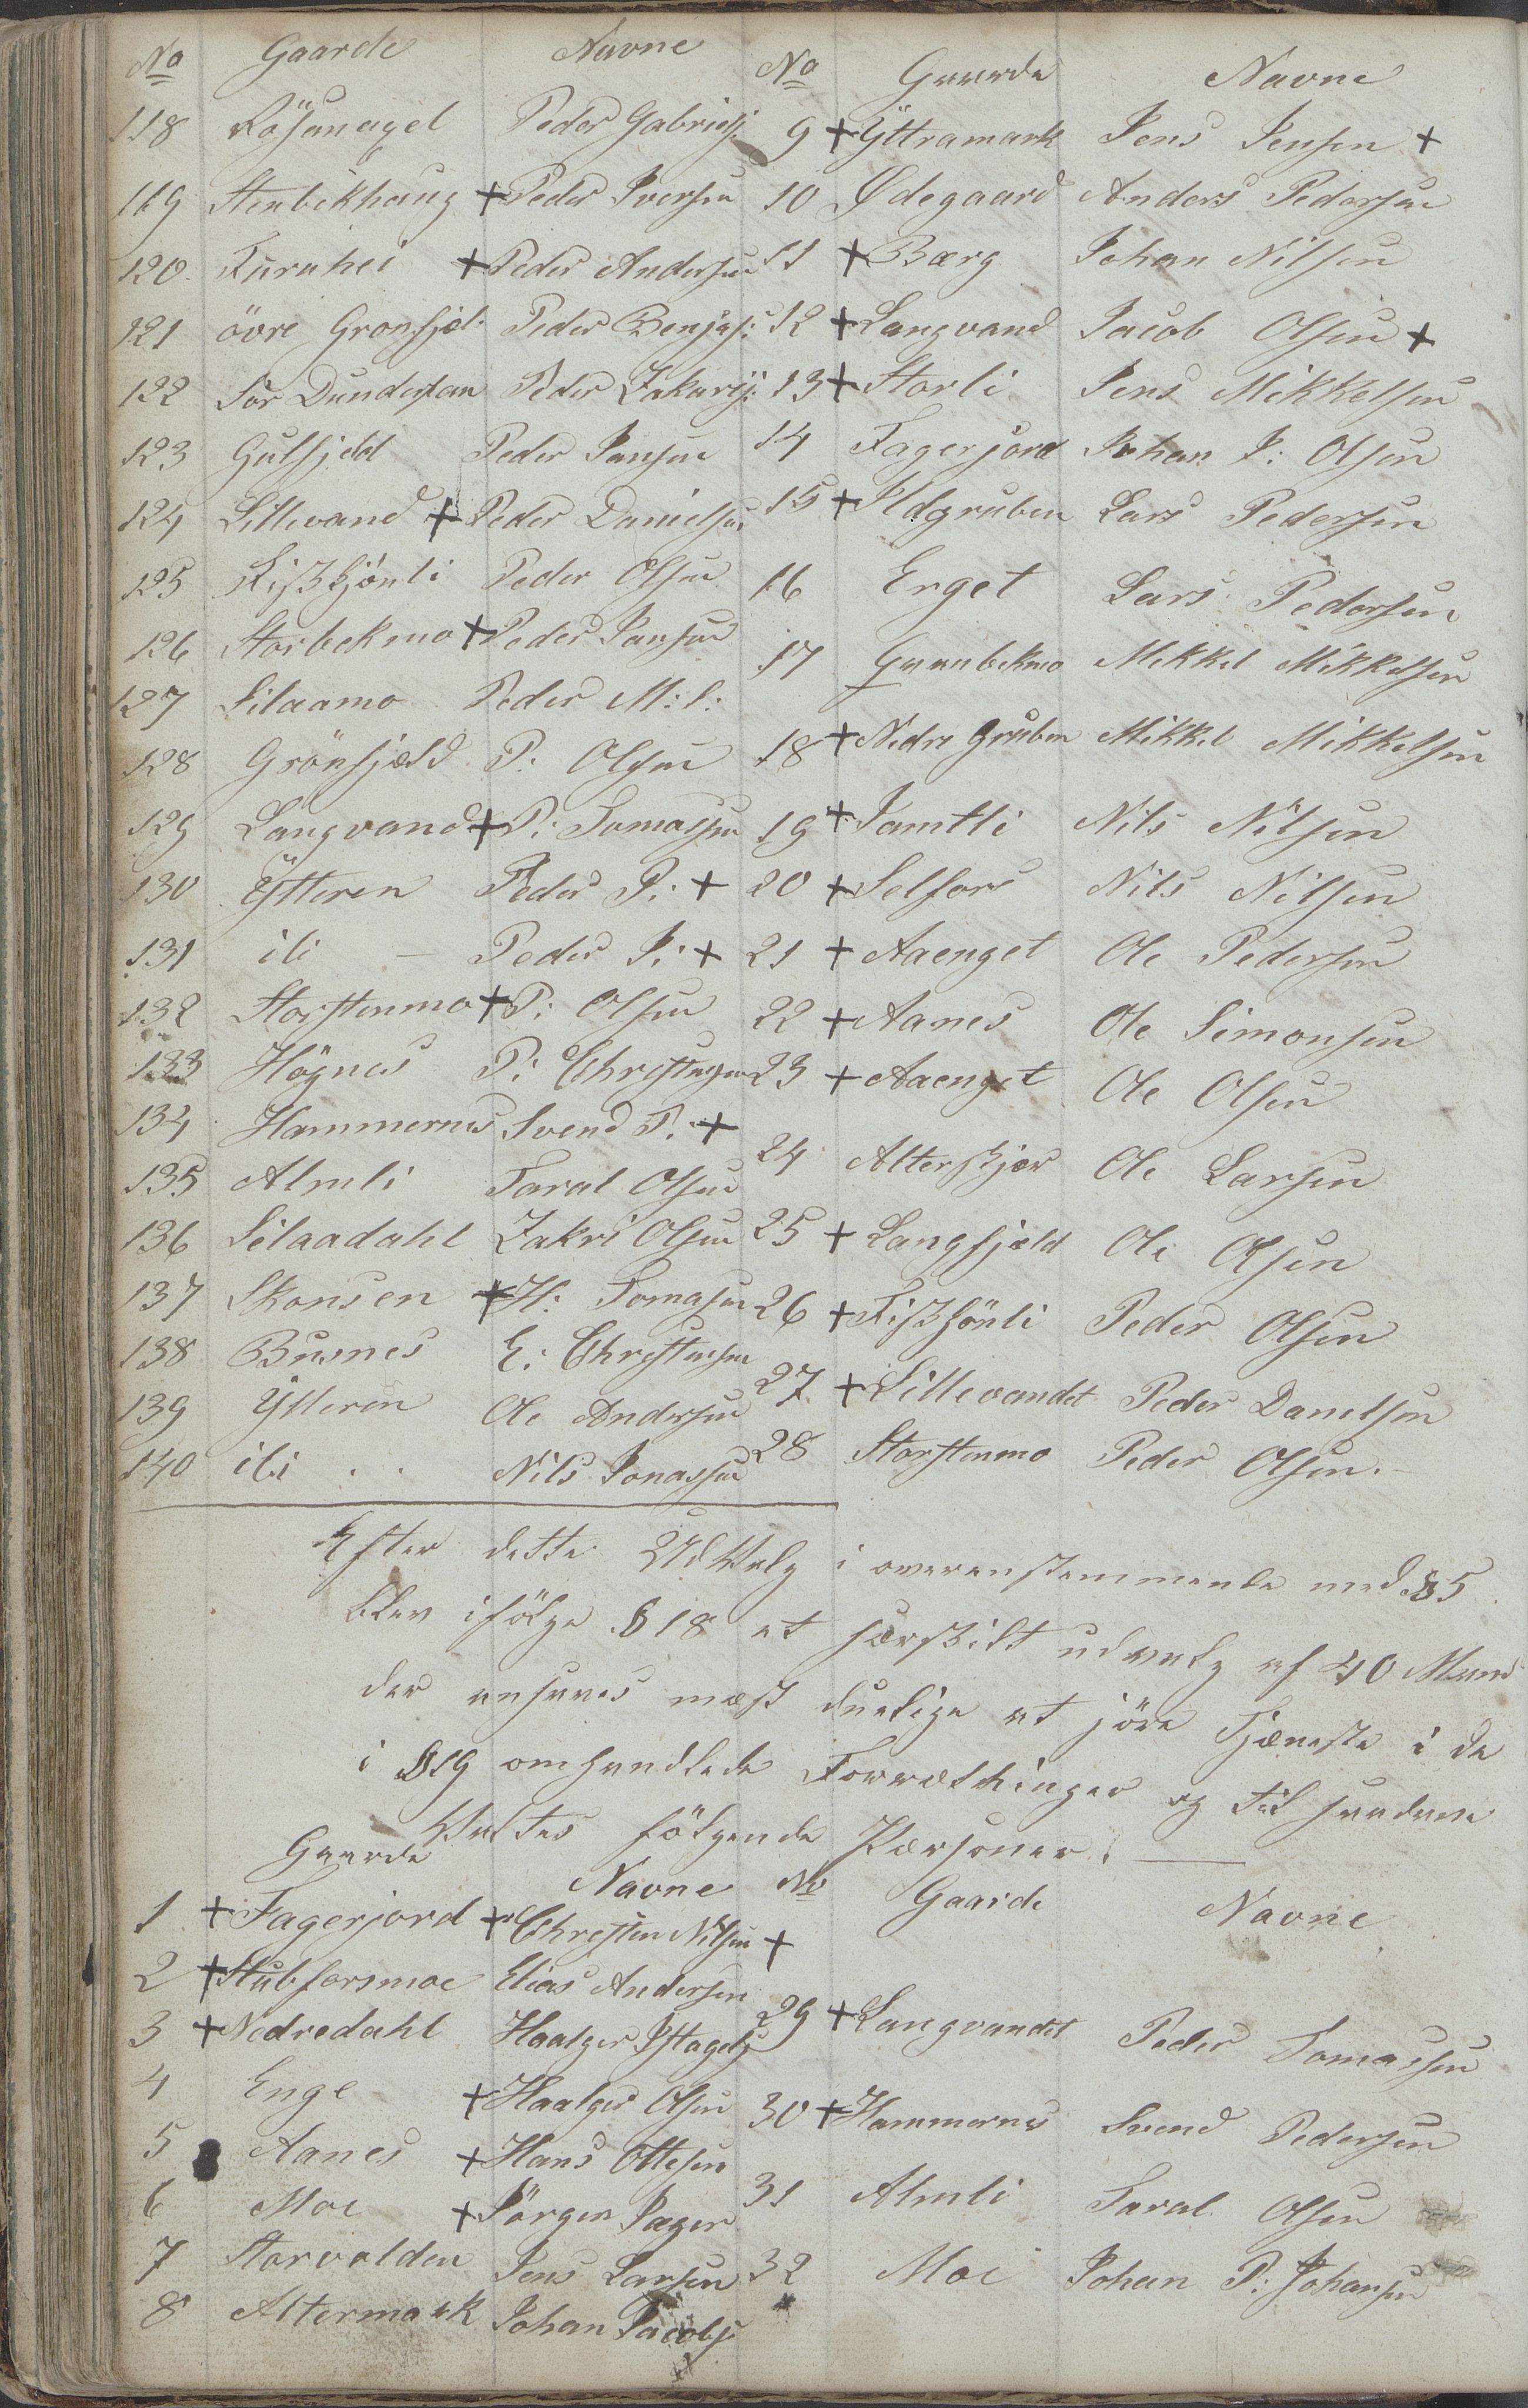 No Gaarde Navne
118 Rösenagel Peder Gabriels:
119 Stenbekhaug + Peder Iversen
120. Furuhei + Peder Andersen
121 övre Gronfjel: Peder Benjas:
122 Sör Dunderlan Peder Zakarij:
123 Gulfjeld Peder Jansen
124 Lillevand + Peder Danielsen
125 Fiskkjönli Peder Olsen
126 Storbekmo + Peder Jansen
127 Silaamo Peder M: S:
128 Grönfjæld P: Olsen
129 Langvand + P: Tomassen
130 Ÿtteren Peder P: +
131 ibi — Peder J: +
132 Storstenmo + P: Olsen
133 Högnes P: Christensen
134 Hammernes Svend P. +
135 Almli Taral Olsen
136 Silaadahl Zakri Olsen
137 Skonsen + H: Tomasen
138 Busnes E: Christensen
139 Ytteren Ole Andersen
140 ibi . . Nils Jonassen
No Gaarde Navne
9 + Ÿttramark Jens Jensen +
10 Ødegaard Anders Pedersen
11 + Bærg Johan Nilsen
12 + Langvand Jacob Olsen +
13 + Storli Jens Mikkelsen
14 Fagerjord Johan J: Olsen
15 + Ildgruben Lars Pedersen
16 Erget Lars Pedersen
17 Graubekmo Mikkel Mikkelsen
18 + Nedre Gruben Mikkel Mikkelsen
19 + Jamtli Nils Nilsen
20 + Selfors Nils Nilsen
21 + Aaenget Ole Pedersen
22 + Aanes Ole Simonsen
23 + Aaenget Ole Olsen
24 Alterskjær Ole Larsen
25 + Langfjæld Ole Olsen
26 + Fiskjönli Peder Olsen
27 + Lillevandet Peder Danelsen
28 Storstenmo Peder Olsen. —
Efter dette Udvalg i overenstemmende med §5
blev ifölge §18 et særskilt udvalg af 40 Mand
der ansees mæst duelige at jöre Tjæneste i de
i §19 omhandlede Forrætninger og til saadane
Valtes fölgende Pærsoner. —
Gaarde Navne
1 + Fagerjord + Christen Nilsen +
2 + Stubforsmoe Elias Andersen
3 + Nedredahl Haalger
4 Enge + Haalger Olsen
5 Aanes + Hans Ottesen
6 Moe + Jörgen Jager
7 Storvolden Jens Larsen
8 Altermark Johan Jacobs:
No Gaarde Navne
29 + Langvandet Peder Tomassen
30 + Hammernes Svend Pedersen
31 Almli Taral Olsen
32 Moe Johan P: Johansen